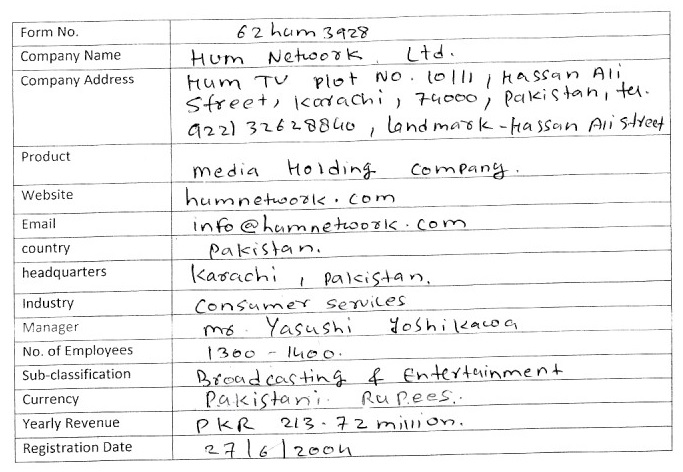 Form No. 62hum3928
Company Name Hum Network Ltd.
Company Address Hum TV Plot No. 10/11, Hassan Ali
Street, Karachi, 74000, Pakistan, tel.
922132628840, landmark-Hassan Ali Street
Product media Holding company.
Website humnetwork.com
Email info@humnetwork.com
country Pakistan.
headquarters Karachi, Pakistan.
Industry Consumer services
Manager mr. Yasushi Yoshikawa
No. of Employees 1300-1400.
Sub-classification Broadcasting & Entertainment
Currency Pakistani Rupees.
Yearly Revenue PKR 213.72 million.
Registration Date 27/6/2004